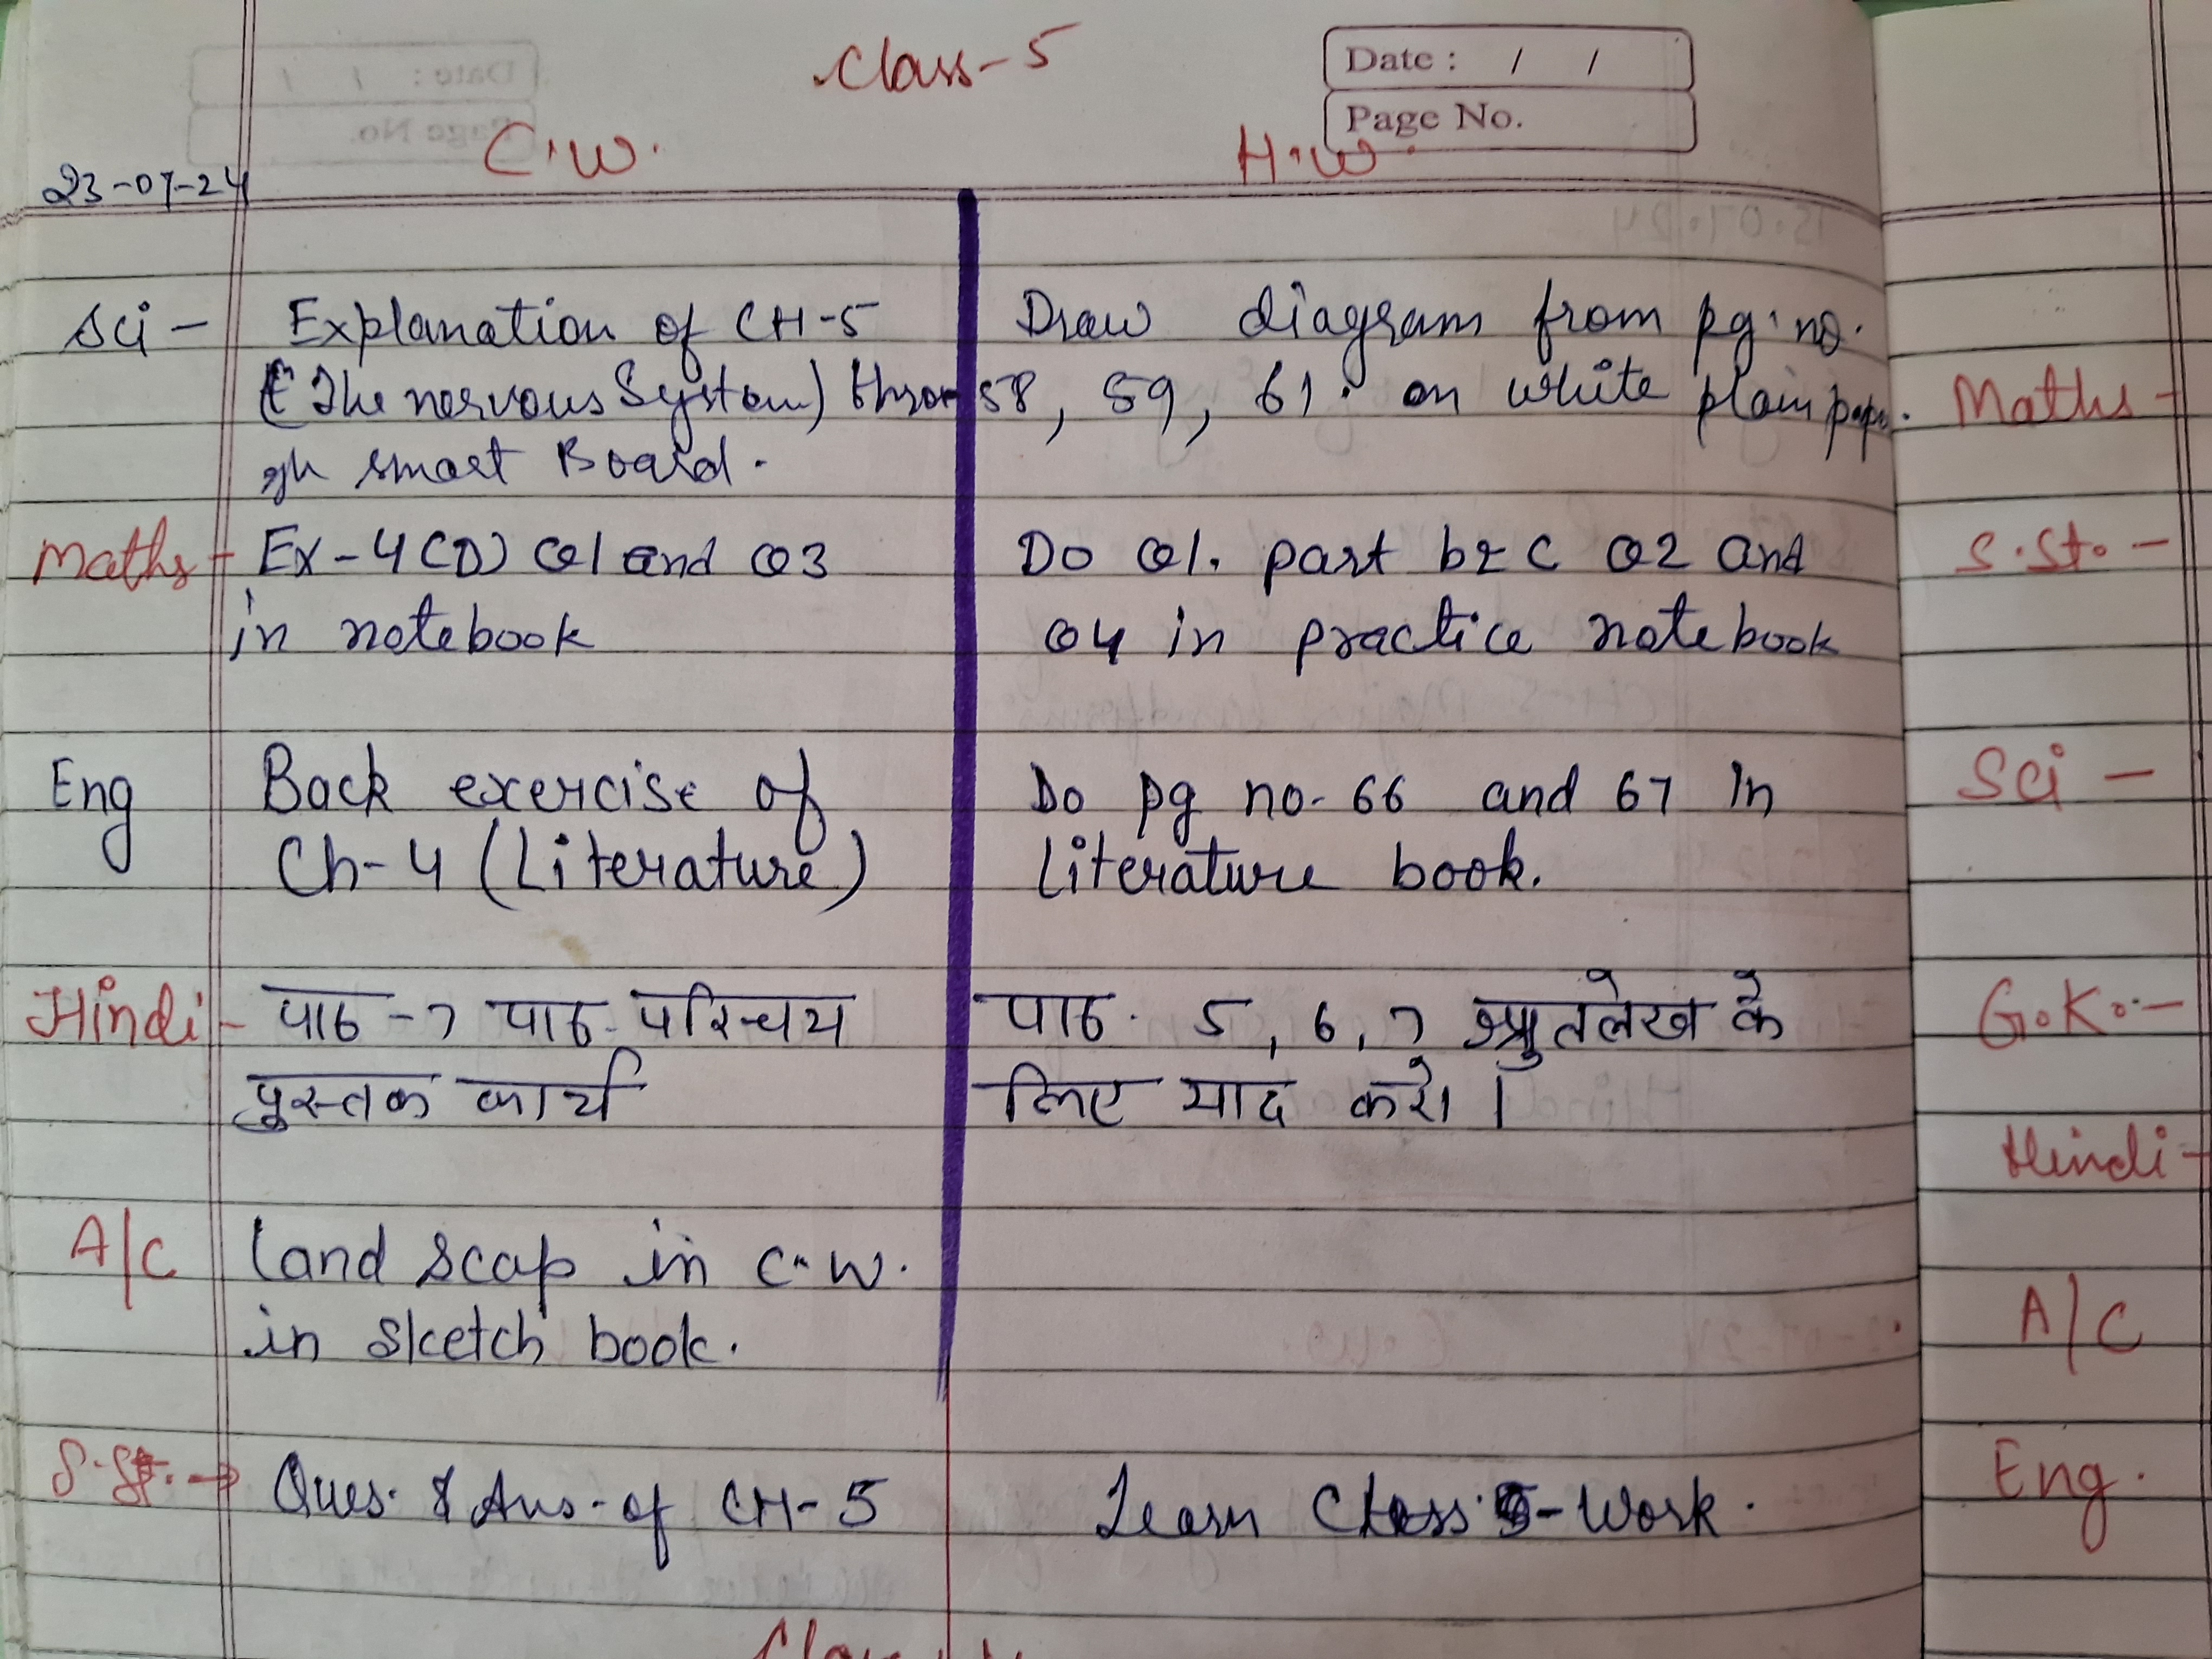 Class-5
Date : / /
Page No.
C.W. H.W.
23-07-24
Sci - Explanation of CH-5 Draw diagram from pg. no.
(The nervous System) throu 58, 59, 61. on white plain paper.
gh smart Board.
Maths - Ex-4(D) Q1 and Q3 Do Q1. part b & c Q2 and
in notebook Q4 in practice notebook
Eng Back exercise of Do pg no- 66 and 67 in
Ch-4 (Literature) Literature book.
Hindi - पाठ-7 पाठ-परिचय पाठ- 5, 6, 7 श्रुतलेख के
पुस्तक कार्य लिए याद करो।
A/C Land scap in c.w.
in sketch book.
S.St. → Ques. & Ans. of CH-5 Learn Class-Work.
Class
Maths -
S.St. -
Sci -
G.K. -
Hindi -
A/C
Eng.